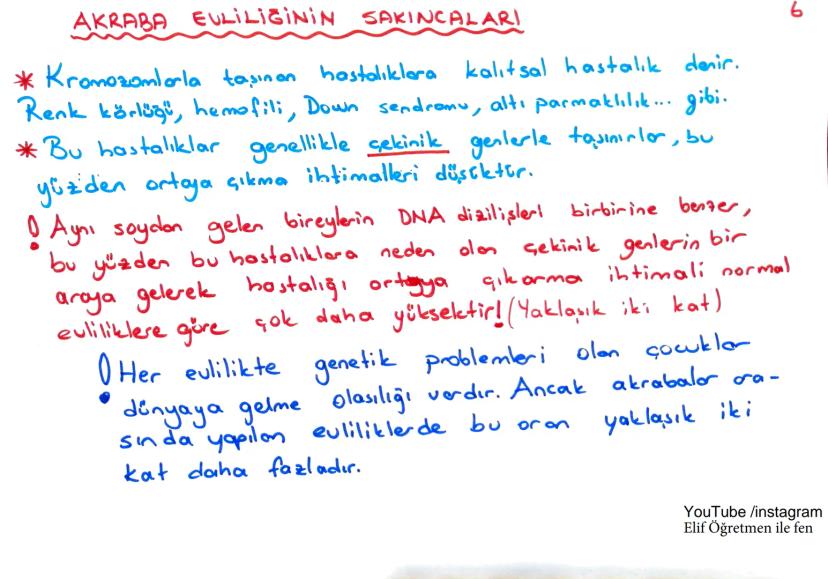 AKRABA EVLİLİĞİNİN SAKINCALARI
6
* Kromozomlarla taşınan hastalıklara kalıtsal hastalık denir.
Renk körlüğü, hemofili, Down sendromu, altı parmaklılık... gibi.
* Bu hastalıklar genellikle çekinik genlerle taşınırlar, bu
yüzden ortaya çıkma ihtimalleri düşüktür.
! Aynı soydan gelen bireylerin DNA dizilişleri birbirine benzer,
bu yüzden bu hastalıklara neden olan çekinik genlerin bir
araya gelerek hastalığı ortaya çıkarma ihtimali normal
evliliklere göre çok daha yüksektir! (Yaklaşık iki kat)
! Her evlilikte genetik problemleri olan çocuklar
dünyaya gelme olasılığı vardır. Ancak akrabalar ara-
sında yapılan evliliklerde bu oran yaklaşık iki
kat daha fazladır.
YouTube /instagram
Elif Öğretmen ile fen